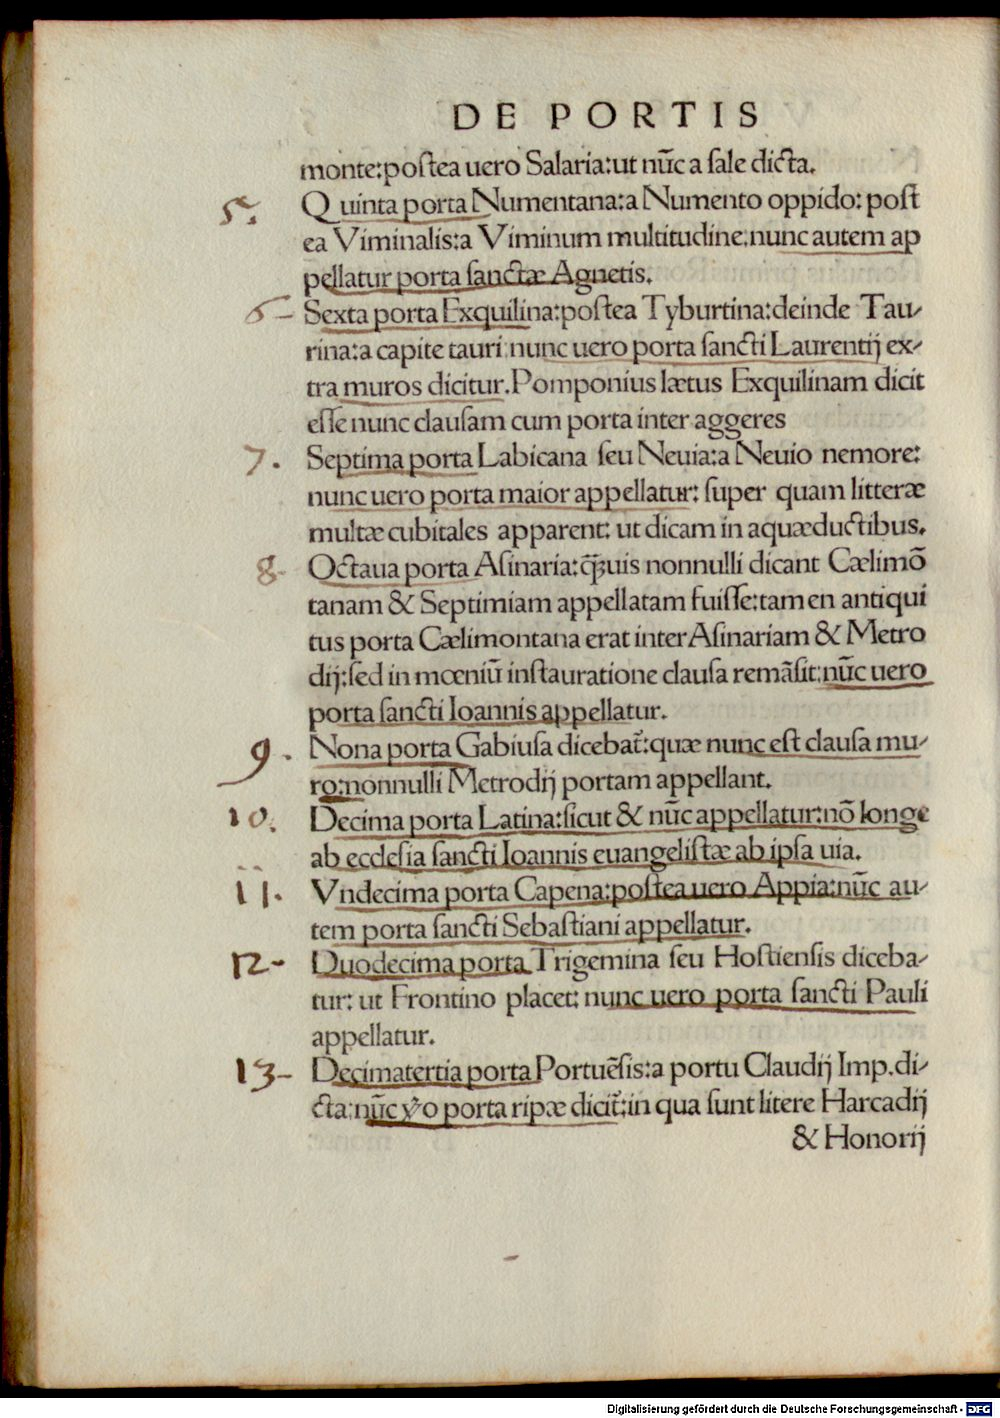 DE PORTIS
monte:poſtea uero Salaria:ut nūc a ſale dicta.
5. Quinta porta Numentana:a Numento oppido: poſt
ea Viminalis:a Viminum multitudine:nunc autem ap
pellatur porta ſanctæ Agnetis.
6- Sexta porta Exquilina:poſtea Tyburtina:deinde Tau-
rina:a capite tauri:nunc uero porta ſancti Laurentij ex-
tra muros dicitur.Pomponius lætus Exquilinam dicit
eſſe nunc clauſam cum porta inter aggeres
7. Septima porta Labicana ſeu Neuia:a Neuio nemore:
nunc uero porta maior appellatur: ſuper quam litteræ
multæ cubitales apparent: ut dicam in aquæductibus.
8- Octaua porta Aſinaria:q̄̄uis nonnulli dicant Cælimō
tanam & Septimiam appellatam fuiſſe:tamen antiqui
tus porta Cælimontana erat inter Aſinariam & Metro
dij:ſed in mœniū inſtauratione clauſa remāſit:nūc uero
porta ſancti Ioannis appellatur.
9. Nona porta Gabiuſa dicebat̄:quæ nunc eſt clauſa mu-
ro:nonnulli Metrodij portam appellant.
10. Decima porta Latina:ſicut & nūc appellatur:nō longe
ab eccleſia ſancti Ioannis euangeliſtæ ab ipſa uia.
11. Vndecima porta Capena:poſtea uero Appia:nūc au-
tem porta ſancti Sebaſtiani appellatur.
12- Duodecima porta Trigemina ſeu Hoſtienſis diceba-
tur: ut Frontino placet: nunc uero porta ſancti Pauli
appellatur.
13- Decimatertia porta Portuēſis:a portu Claudij Imp.di-
cta:nūc v̊o porta ripæ dicit̄:in qua ſunt litere Harcadij
& Honorij
Digitalisierung gefördert durch die Deutsche Forschungsgemeinschaft - DFG